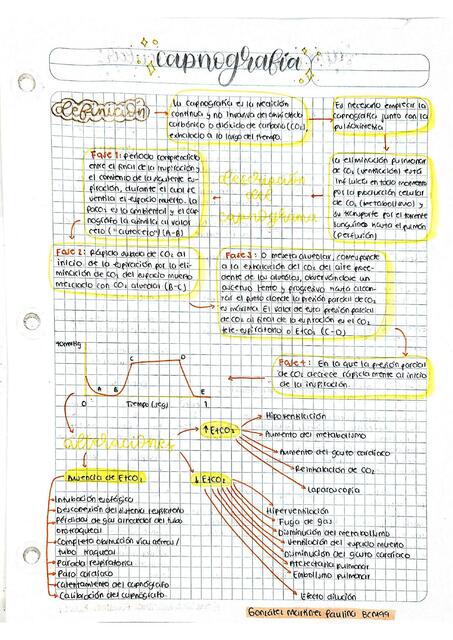 capnografía
definición
La capnografía es la medición
continua y no invasiva del
carbónico o dióxido de carbono (CO₂)
exhalado a lo largo del tiempo.
Es necesario emplear la
capnografía junto con la
pulsioximetría
La eliminación pulmonar
de CO₂ (ventilación) está
influida en todo momento
por la producción celular
de CO₂ (metabolismo) y
su transporte por el torrente
sanguíneo hasta el pulmón
(perfusión)
descripción
del
capnograma
Fase 1: periodo comprendido
entre el final de la inspiración y
el comienzo de la siguiente es-
piración, durante el cual se
ventila el espacio muerto. La
PaCO₂ es la ambiental y el cap-
nógrafo la asimila al valor
cero ("autocero") (A-B)
Fase 2: Rápida subida de CO₂ al
inicio de la espiración por la eli-
minación de CO₂ del espacio muerto
mezclado con CO₂ alveolar (B-C)
Fase 3: O meseta alveolar, corresponde
a la exhalación del CO₂ del aire proce-
dente de los alveolos, observándose un
ascenso lento y progresivo hasta alcan-
zar el punto donde la presión parcial de CO₂
es máxima. El valor de esta presión parcial
de CO₂ al final de la espiración es el CO₂
tele-espiratorio o EtCO₂ (C-D)
Fase 4: En la que la presión parcial
de CO₂ decrece rápidamente al inicio
de la inspiración.
40mmHg
C
D
A
B
E
0
Tiempo (seg)
1
alteraciones
↑EtCO₂
Hipoventilación
Aumento del metabolismo
Aumento del gasto cardíaco
Reinhalación de CO₂
Laparoscopia
Ausencia de EtCO₂
Intubación esofágica
Desconexión del sistema respiratorio
Pérdidas de gas alrededor del tubo
orotraqueal
Completo obstrucción vías aéreas/
tubo traqueal
Parada respiratoria
Paro cardíaco
Calentamiento del capnógrafo
Calibración del capnógrafo
↓EtCO₂
Hiperventilación
Fuga de gas
Disminución del metabolismo
Ventilación del espacio muerto
Disminución del gasto cardíaco
Atelectasia pulmonar
Embolismo pulmonar
Efecto dilución
González Martínez Paulina